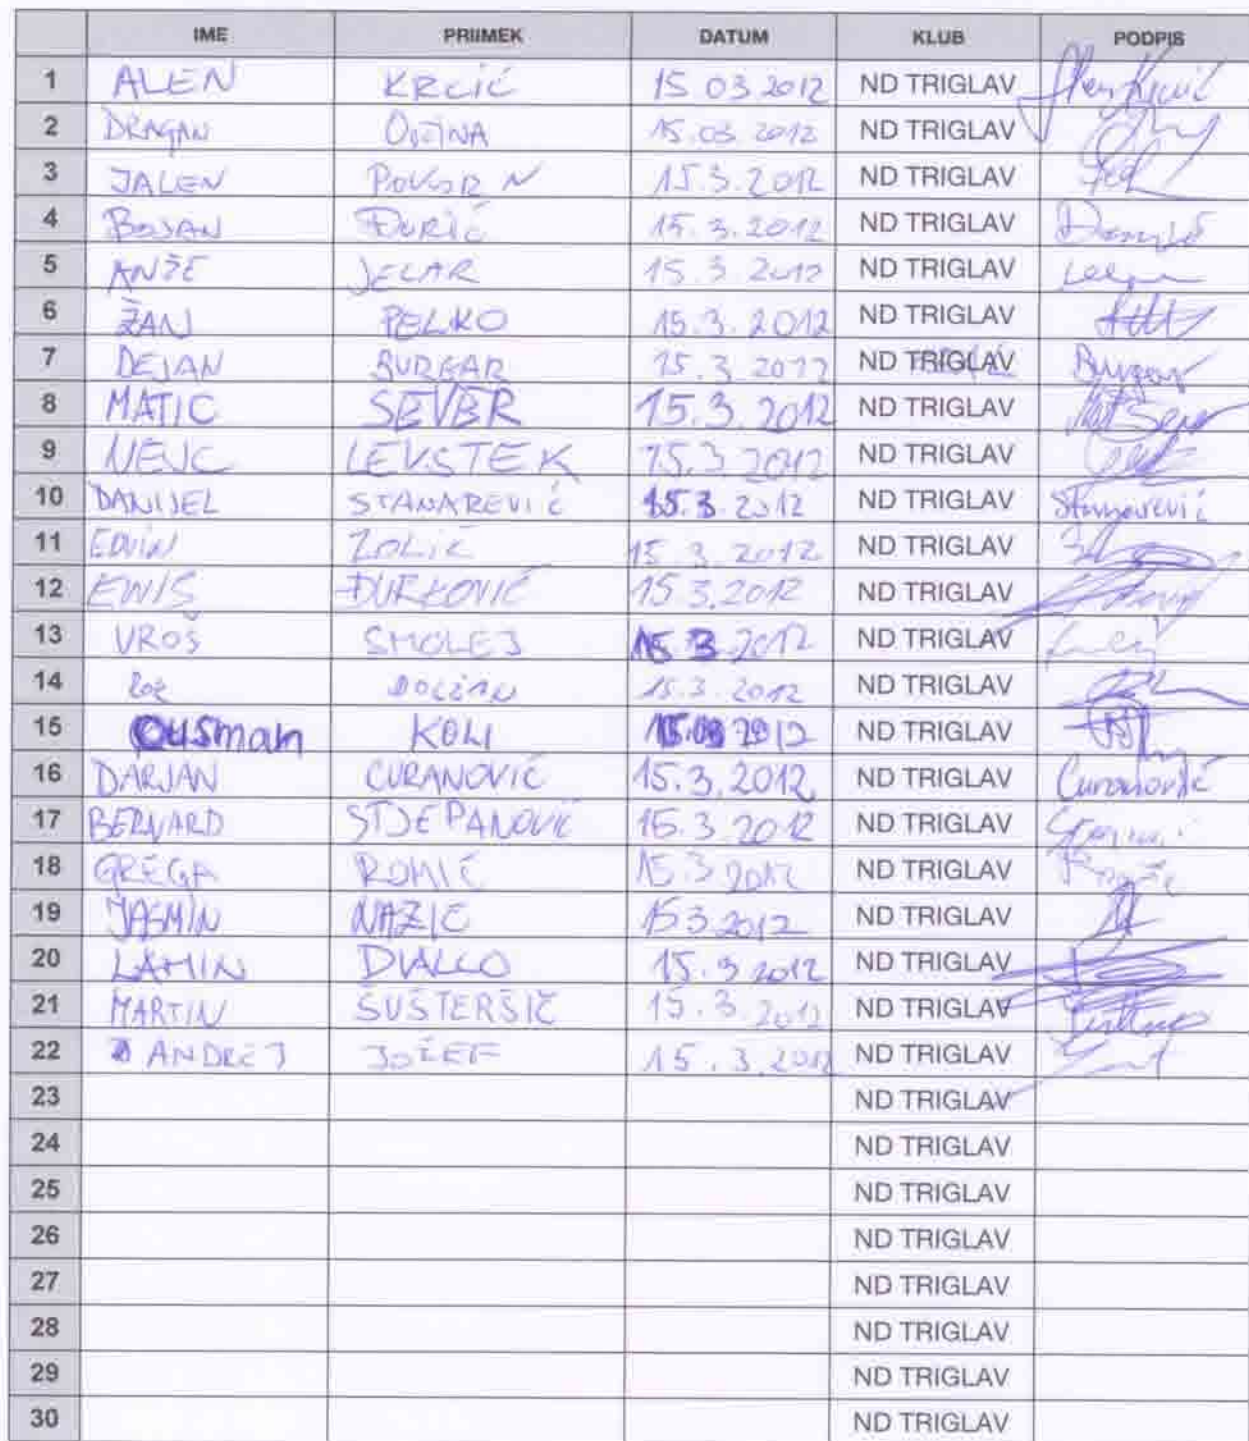 IME PRIIMEK DATUM KLUB PODPIS
1 ALEN KRCIĆ 15.03.2012 ND TRIGLAV
2 DRAGAN 15.03.2012 ND TRIGLAV
3 JALEN POKORN 15.3.2012 ND TRIGLAV
4 BOJAN ĐURIĆ 15.3.2012 ND TRIGLAV
5 ANŽE JELAR 15.3.2012 ND TRIGLAV
6 ŽAN PELKO 15.3.2012 ND TRIGLAV
7 DEJAN BURGAR 15.3.2012 ND TRIGLAV Burgar
8 MATIC SEVER 15.3.2012 ND TRIGLAV
9 NEJC LEVSTEK 15.3.2012 ND TRIGLAV
10 DANIJEL STANAREVIĆ 15.3.2012 ND TRIGLAV Stanarević
11 EDVIN ZOLIĆ 15.3.2012 ND TRIGLAV
12 ENIS ĐURKOVIĆ 15.3.2012 ND TRIGLAV
13 UROŠ SMOLEJ 15.3.2012 ND TRIGLAV
14 DOLŽAN 15.3.2012 ND TRIGLAV
15 OUSMAN KOLI 15.03.2012 ND TRIGLAV
16 DARJAN CURANOVIĆ 15.3.2012 ND TRIGLAV Curanović
17 BERNARD STJEPANOVIĆ 15.3.2012 ND TRIGLAV
18 GREGA ROMIĆ 15.3.2012 ND TRIGLAV
19 JASMIN NAZIĆ 15.3.2012 ND TRIGLAV
20 LAMIN DIALLO 15.3.2012 ND TRIGLAV
21 MARTIN ŠUŠTERŠIČ 15.3.2012 ND TRIGLAV
22 ANDREJ JOŽEF 15.3.2012 ND TRIGLAV
23 ND TRIGLAV
24 ND TRIGLAV
25 ND TRIGLAV
26 ND TRIGLAV
27 ND TRIGLAV
28 ND TRIGLAV
29 ND TRIGLAV
30 ND TRIGLAV